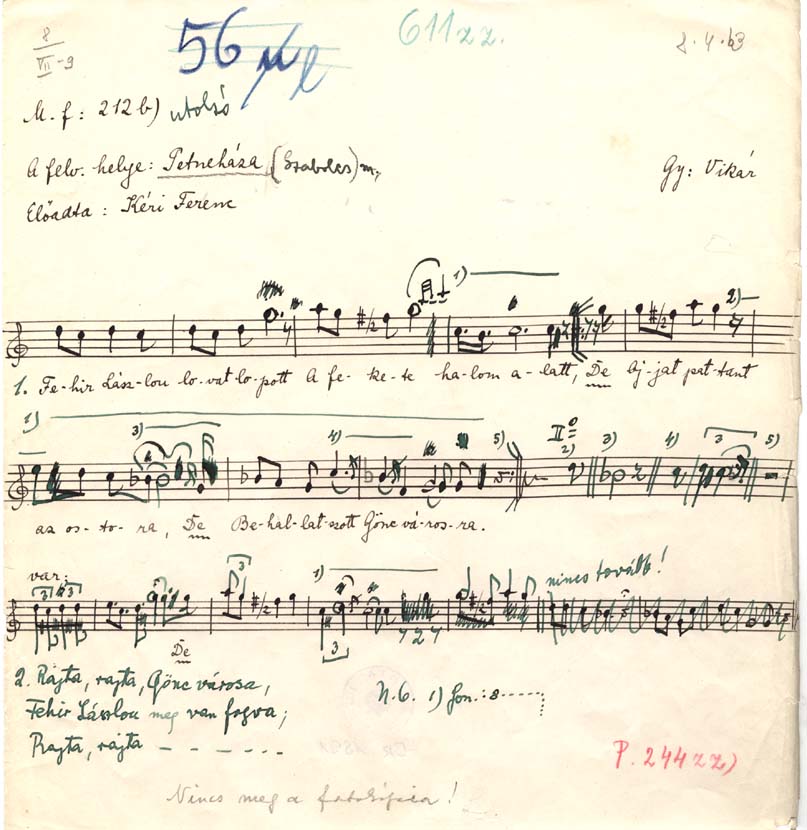 8
VII-9
56
611zz.
M. f: 212b) utolsó
A felv. helye: Petneháza (Szabolcs) m.,
Gy: Vikár
Előadta: Kéri Ferenc
1)
2)
1. Fe-hir Lász-lou lo-vat-lo-pott A fe-ke-te ha-lom a-latt, De áj-jat pat-tant
2) 3) 4) 5) II 2) 3) 4) 3 5)
az os-to-ra, De Be-hal-lat-szott Gönc vá-ros-ra.
var: 3 3 3 1) 3 nincs tovább!
De
2. Rajta, rajta, Gönc városa,
Fehir Lászlou meg van fogva;
Rajta, rajta - - - - - -
N.b. 1) fon.: 8
P. 244zz)
Nincs meg a fotokópia!